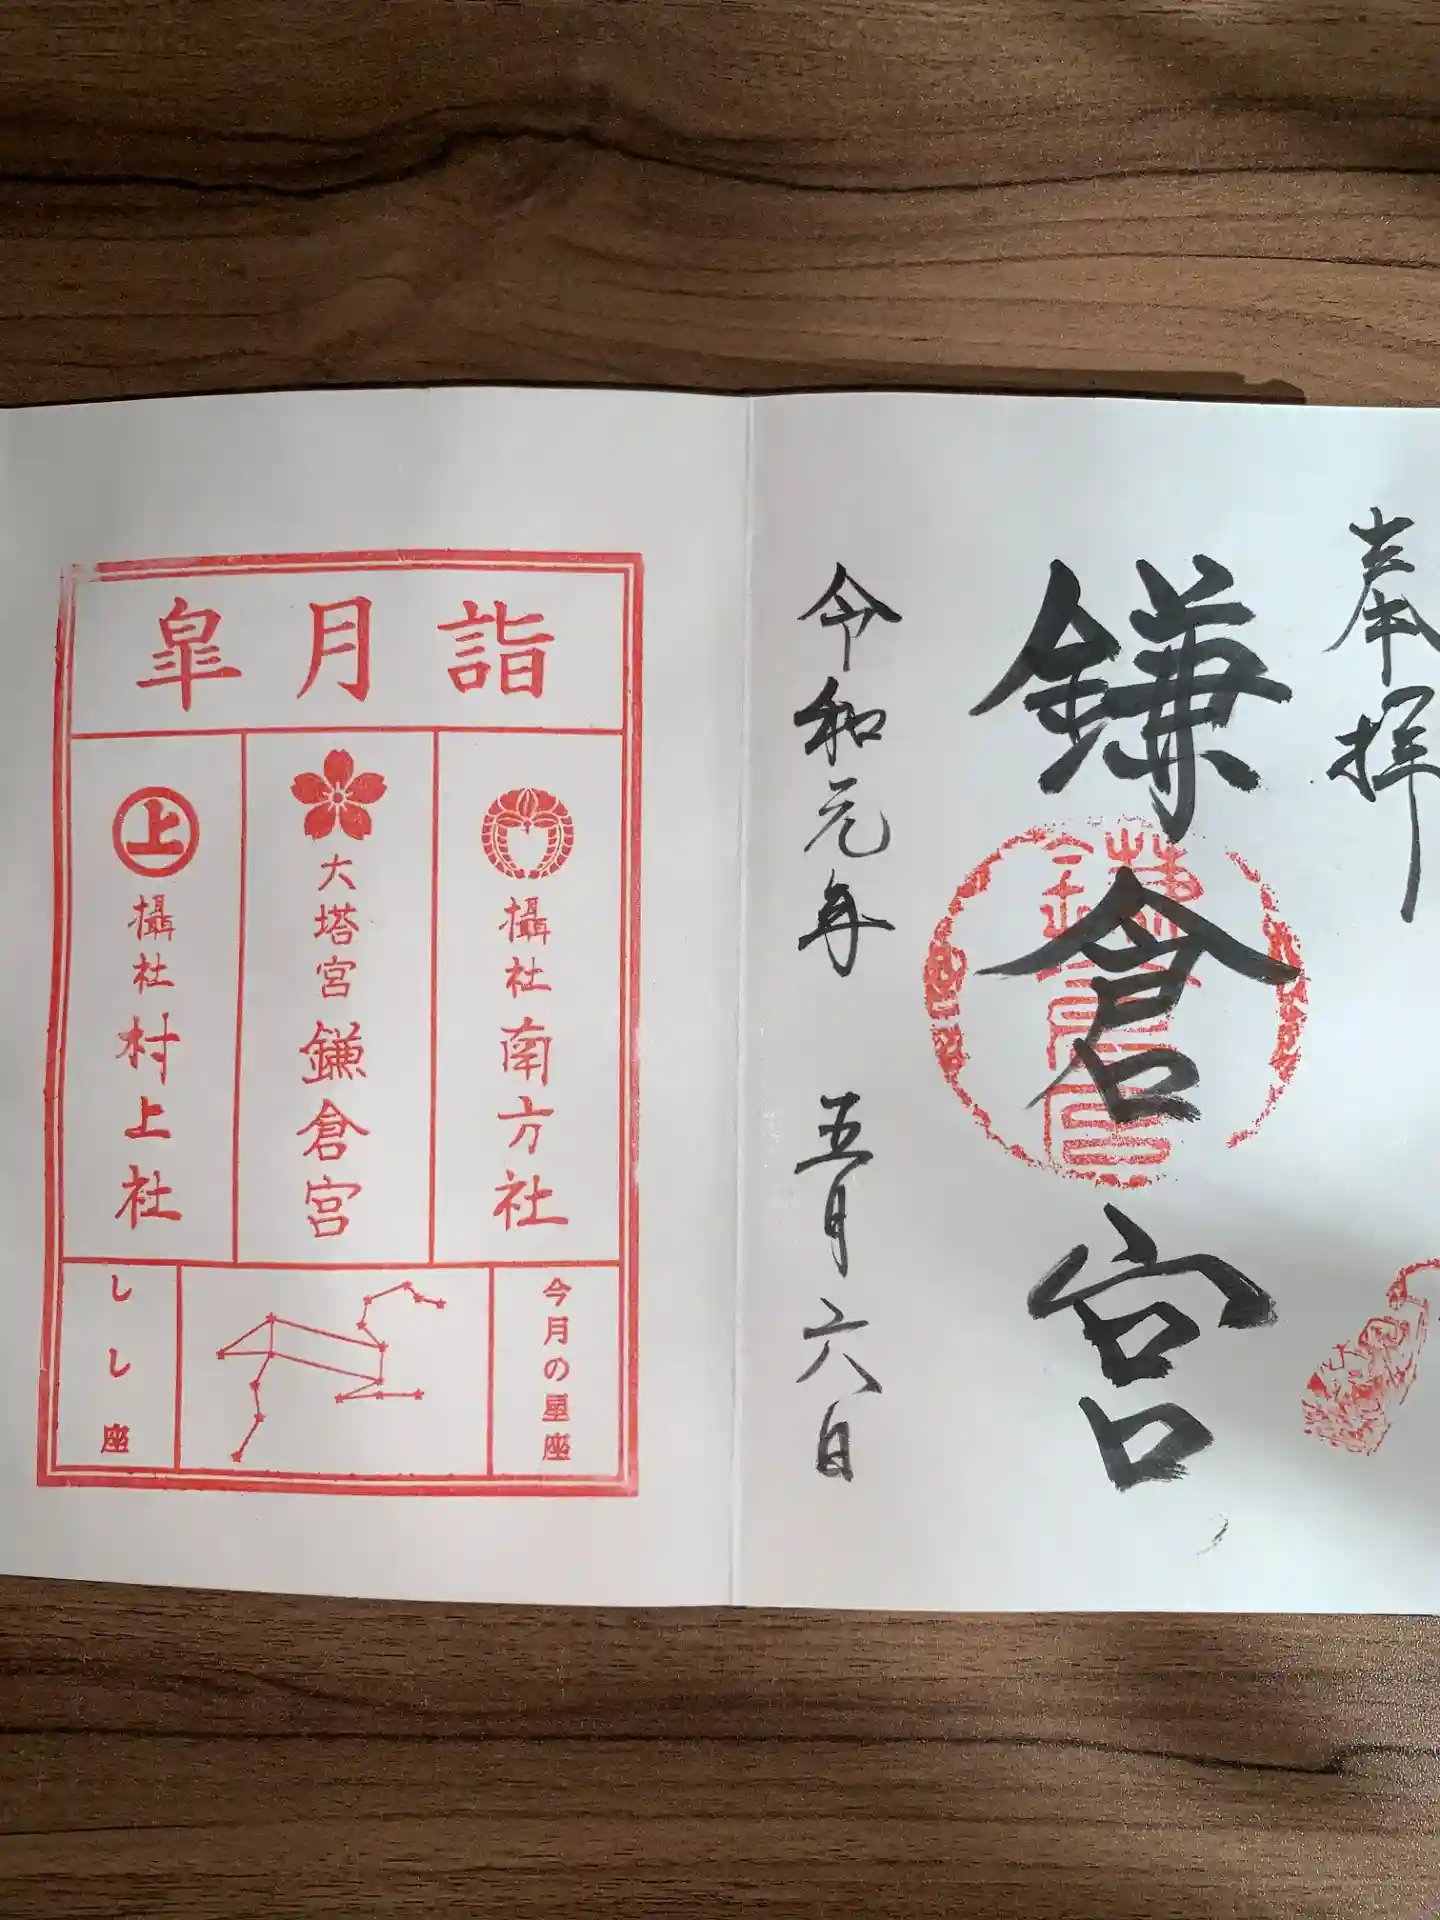 奉拝
鎌倉宮
令和元年 五月六日
皐月詣
摂社 南方社
大塔宮 鎌倉宮
上
攝社 村上社
今月の星座
しし座